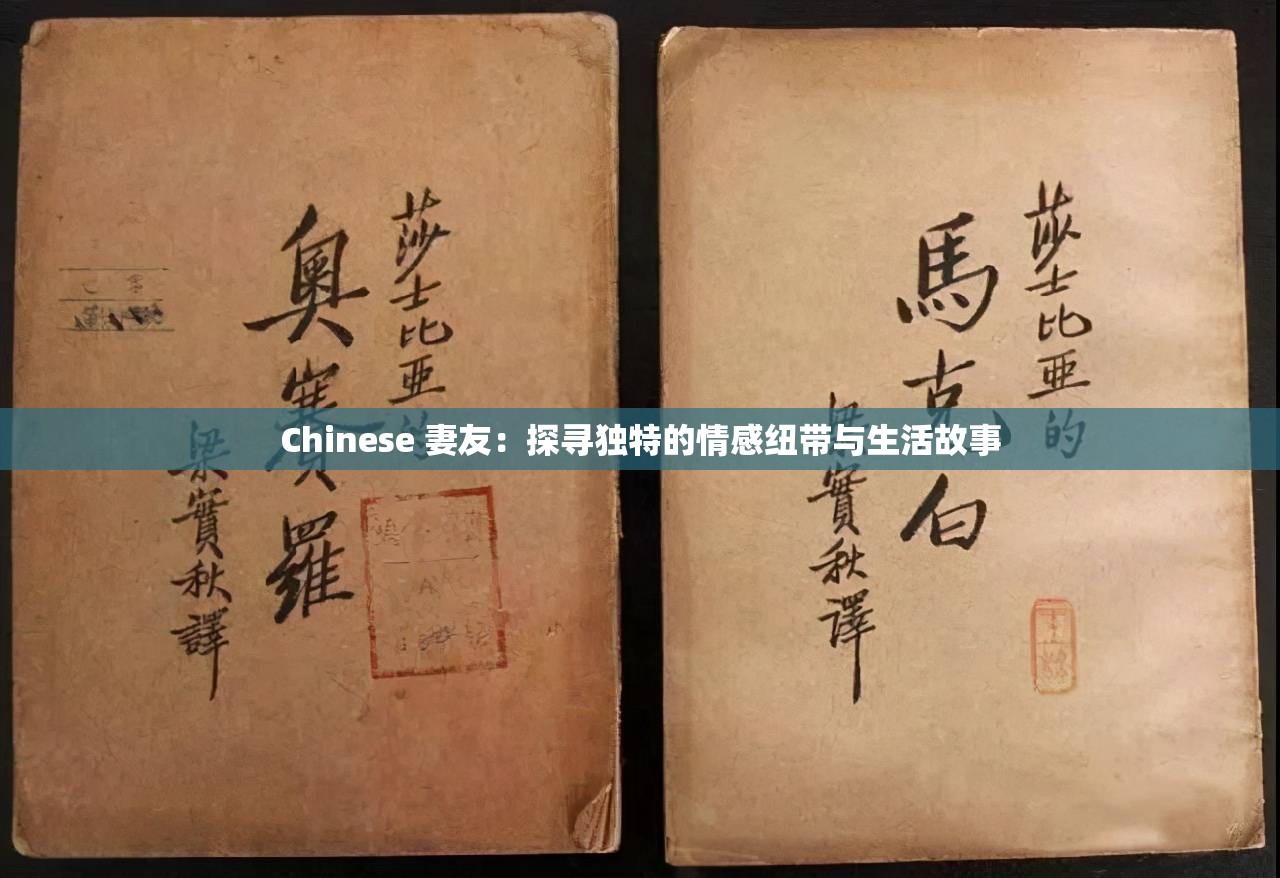 莎士比亚的
奥賽羅
梁實秋譯
Chinese 妻友：探寻独特的情感纽带与生活故事
莎士比亚的
馬克白
梁實秋譯